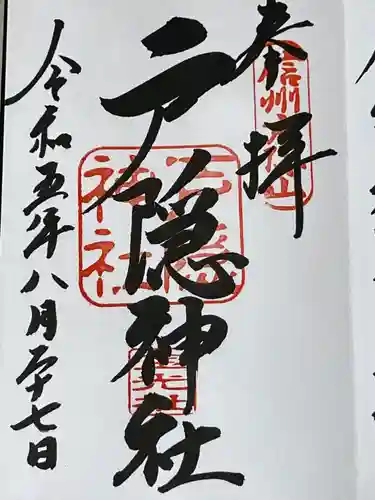 奉拝
信州戸隠山
戸隠神社
戸隠神社
宝光社
令和五年八月二十七日